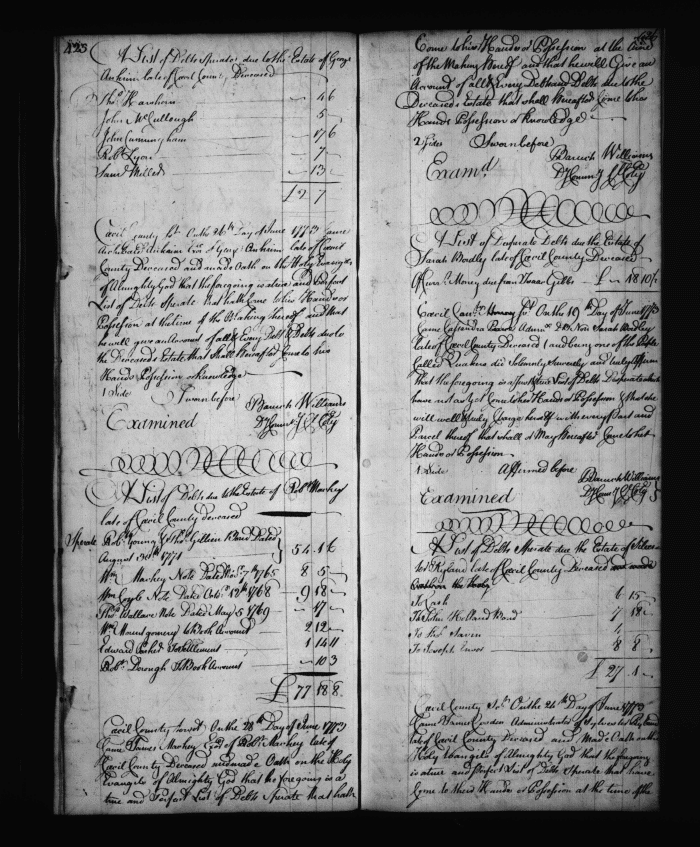 423
A List of Debts Sperate due to the Estate of George
Ankrim late of Cecil County Deceased
Thos Hawthorn 4 6
John McCullough 5
John Cunningham 17 6
Robt Lyon 7
Saml Miller 13
£2 7
Cecil County Sst On the 26th Day of June 1773 Came
Archibald Ankrim Exr of George Ankrim late of Cecil
County Deceased and made Oath on the Holy Evangels
of Almighty God that the foregoing is a true and Perfect
List of Debts Sperate that hath Come to his Hands or
Possession at the time of the Making hereof and that
he will give an Account of all & Every Debt & Debts due to
the Deceaseds Estate that Shall hereafter Come to his
Hands Possession or knowledge
1 Side Sworn before
Baruch Williams
Dy Comry CCty
Examined
A List of Debts due to the Estate of Robt Mackey
late of Cecil County deceased
Sperate Robt Young & Thos Gillespie Band Dated
August 30th 1771 54 1 6
Wm Mackey Note Dated 7th 1765 8 5
Wm Coyle Note Dated Octo 12th 1768 9 18
Thos Wallace Note Dated May 5 1769 17
Wm Mountgomery to Book Account 2 12
Edward to Settlement 1 14 11
Robt Dorough to Book Account 10 3
£77 18 8
Cecil County Towit On the 28th Day of June 1773
Came James Mackey Exr of Robt Mackey late of
Cecil County Deceased and made Oath on the Holy
Evangels of Almighty God that the foregoing is a
true and Perfect List of Debts Sperate that hath
Come to his Hands or Possession at the time
of the Making hereof and that he will Give an
Account of all & Every Debt and Debts due to the
Deceaseds Estate that shall hereafter Come to his
Hands Possession or knowledge
2 Sides Sworn before
Baruch Williams
Dy Comry CCty
Examd
A List of Desperate Debts due the Estate of
Sarah Bodley late of Cecil County Deceased
Money due from Isaac Gibbs £ 18 10
Cecil County Sst On the 19 Day of June 1773
Came Cassandra Admx D B Non Sarah Bodley
late of Cecil County Deceased and being one of the People
Called Quakers did Solemnly Sincerely and truly Affirm
that the foregoing is a List of Debts Desperate which
have not as yet Come to her Hands or Possession & that she
will well & truly Charge herself with every Part and
Parcel thereof that shall or May hereafter Come to her
Hands or Possession
1 Side Affirmed before
Baruch Williams
Dy Comry CCty
Examined
A List of Debts Sperate due the Estate of
Ryland late of Cecil County Deceased and made
To Cash 6 15
To John Holland Band 7 18
To
To Joseph 8 8
£27 1
Cecil County Sst On the 26th Day of June 1773
Came Administrator of Sylvester Ryland
late of Cecil County Deceased and Made Oath on the
Holy Evangels of Almighty God that the foregoing
is a true and Perfect List of Debts Sperate that have
Come to their Hands or Possession at the time of the